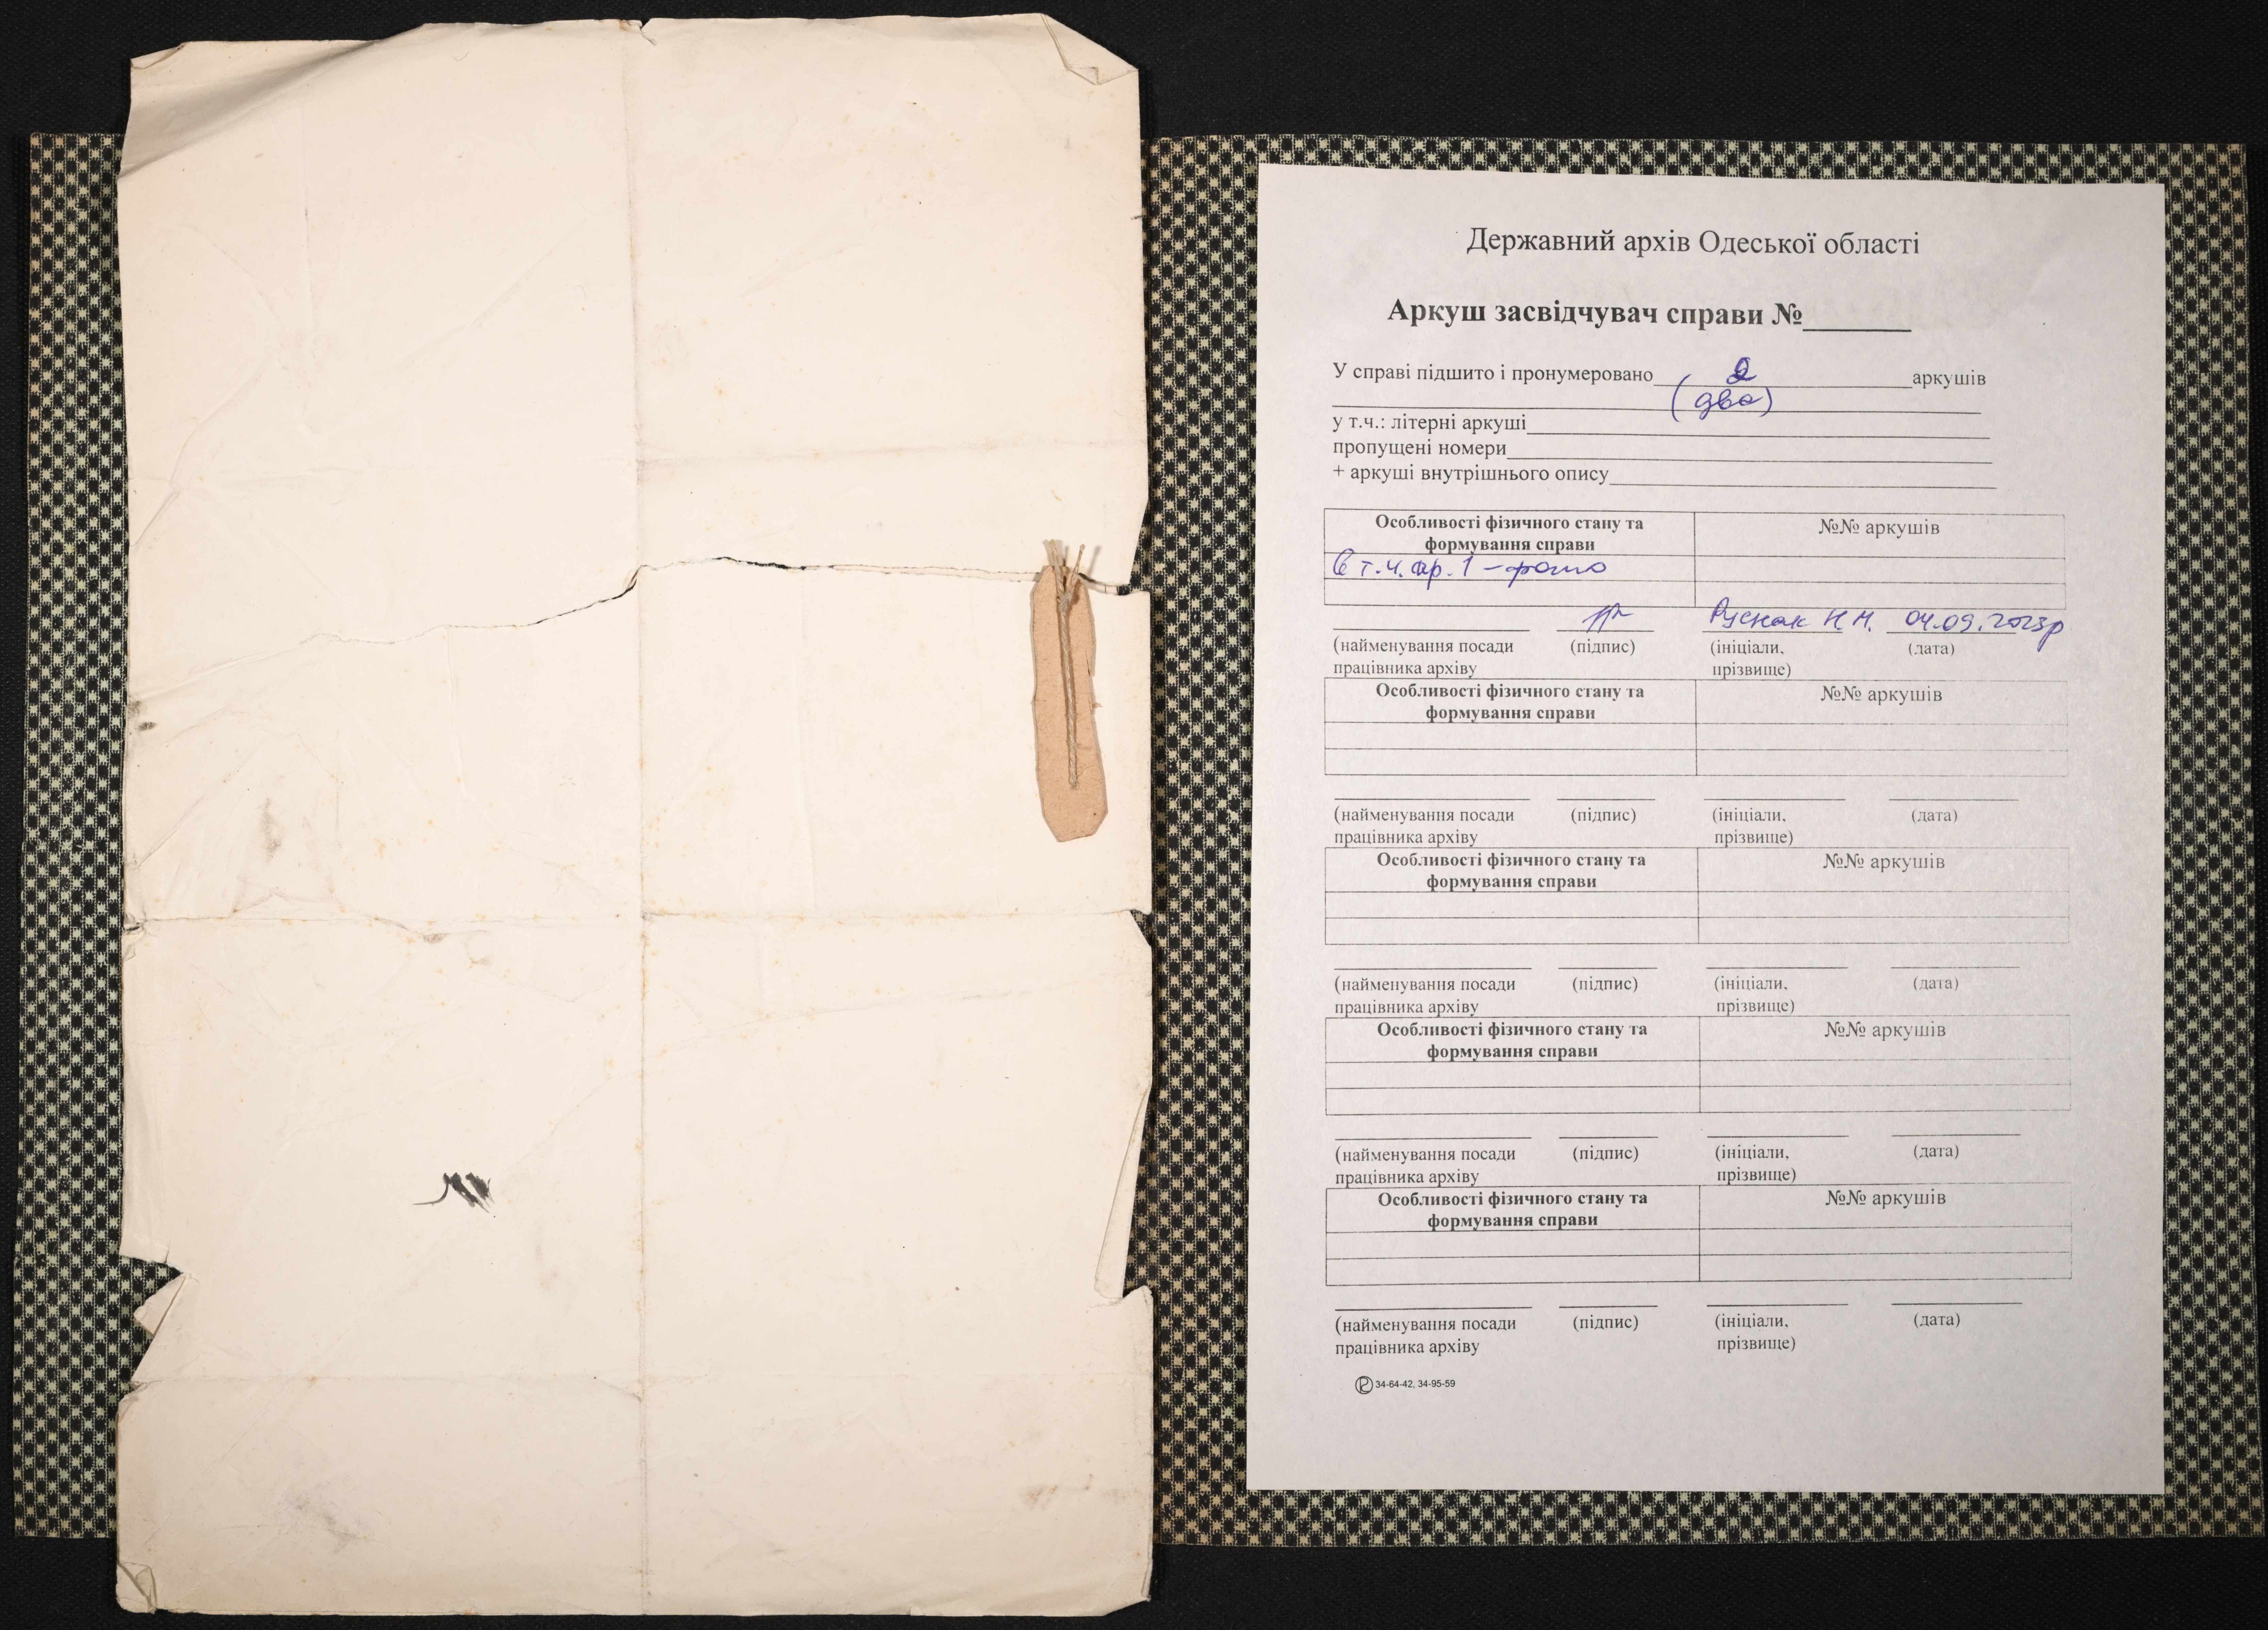 Державний архів Одеської області
Аркуш засвідчувач справи №
У справі підшито і пронумеровано 2 аркушів
(два)
у т.ч.: літерні аркуші
пропущені номери
+ аркуші внутрішнього опису
Особливості фізичного стану та формування справи №№ аркушів
в т.ч. ар. 1 – фото
Руснак Н.М. 04.09.2023р
(найменування посади (підпис) (ініціали, (дата)
працівника архіву прізвище)
Особливості фізичного стану та формування справи №№ аркушів
(найменування посади (підпис) (ініціали, (дата)
працівника архіву прізвище)
Особливості фізичного стану та формування справи №№ аркушів
(найменування посади (підпис) (ініціали, (дата)
працівника архіву прізвище)
Особливості фізичного стану та формування справи №№ аркушів
(найменування посади (підпис) (ініціали, (дата)
працівника архіву прізвище)
Особливості фізичного стану та формування справи №№ аркушів
(найменування посади (підпис) (ініціали, (дата)
працівника архіву прізвище)
34-64-42, 34-95-59